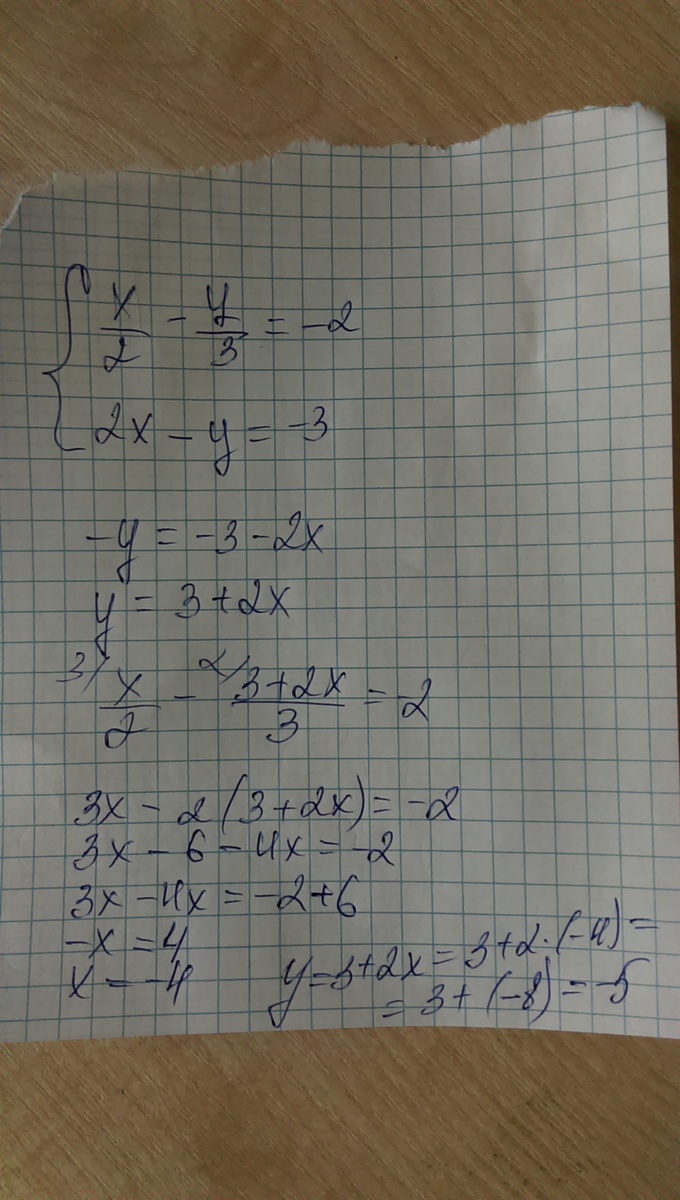 x/2 - y/3 = -2
2x - y = -3
-y = -3 - 2x
y = 3 + 2x
3) x/2 - 2) (3+2x)/3 = -2
3x - 2(3+2x) = -2
3x - 6 - 4x = -2
3x - 4x = -2+6
-x = 4
x = -4
y = 3+2x = 3+2·(-4) =
= 3 + (-8) = -5